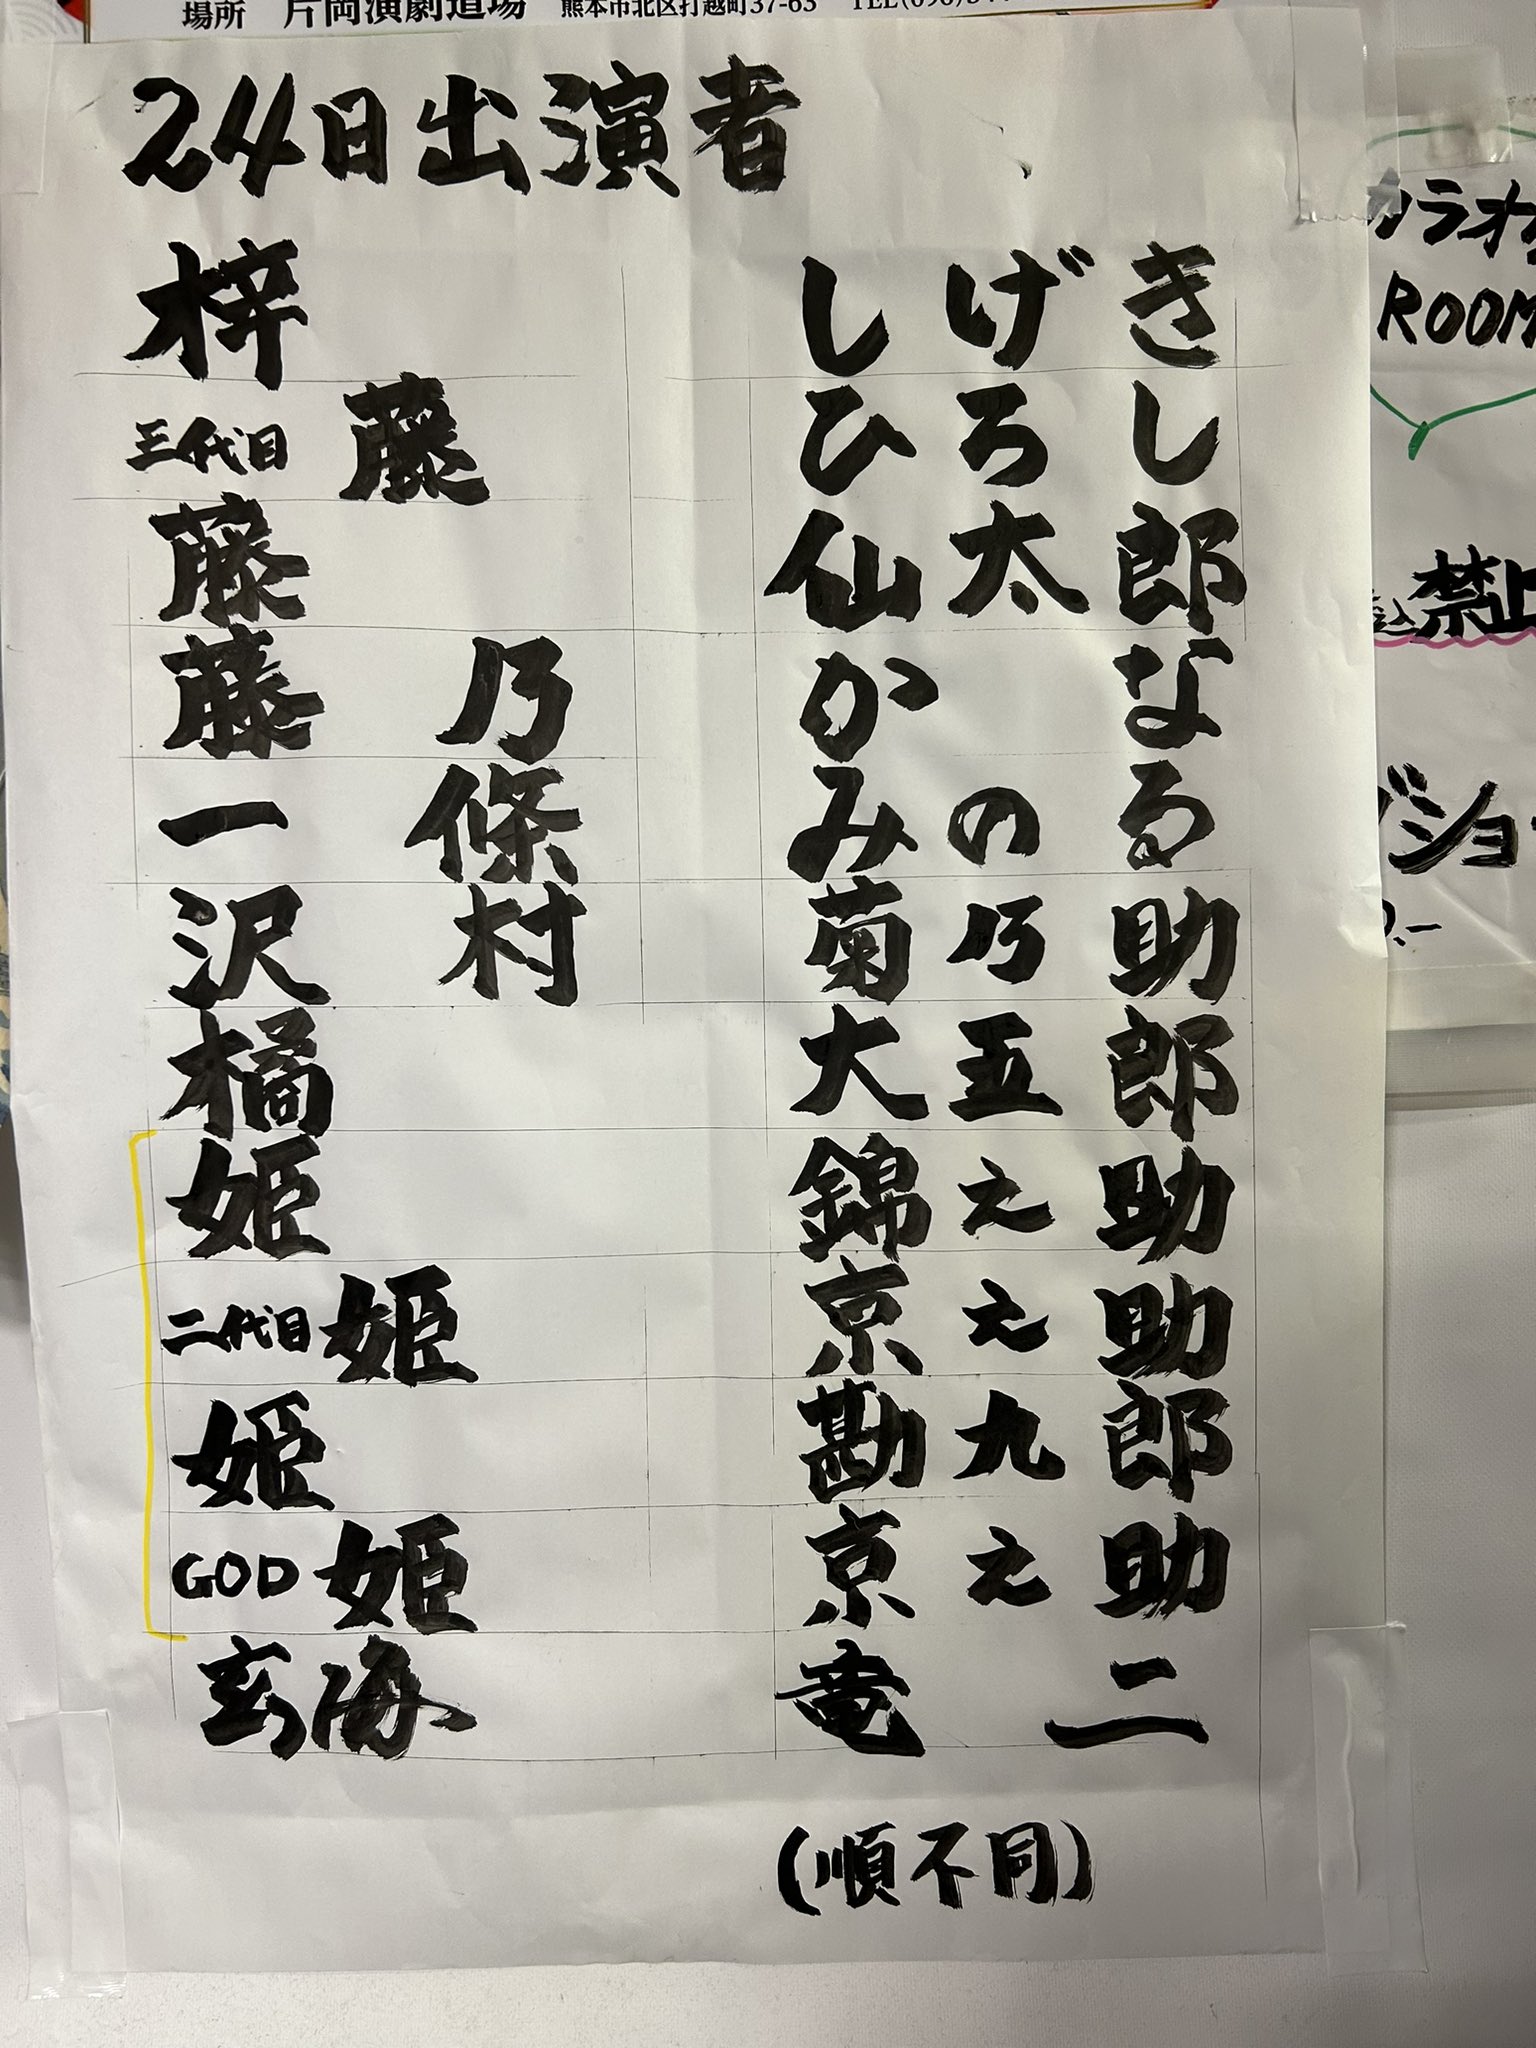 場所 片岡演劇道場 熊本市北区打越町37-63 TEL(096)
24日出演者
梓 しげき
三代目 藤 ひろし
藤 仙太郎
藤乃 かな
一條 みのる
沢村 菊乃助
橘 大五郎
姫 錦之助
二代目 姫 京之助
姫 勘九郎
GOD 姫 京之助
玄海 竜二
(順不同)
カラオケ
ROOM
禁止